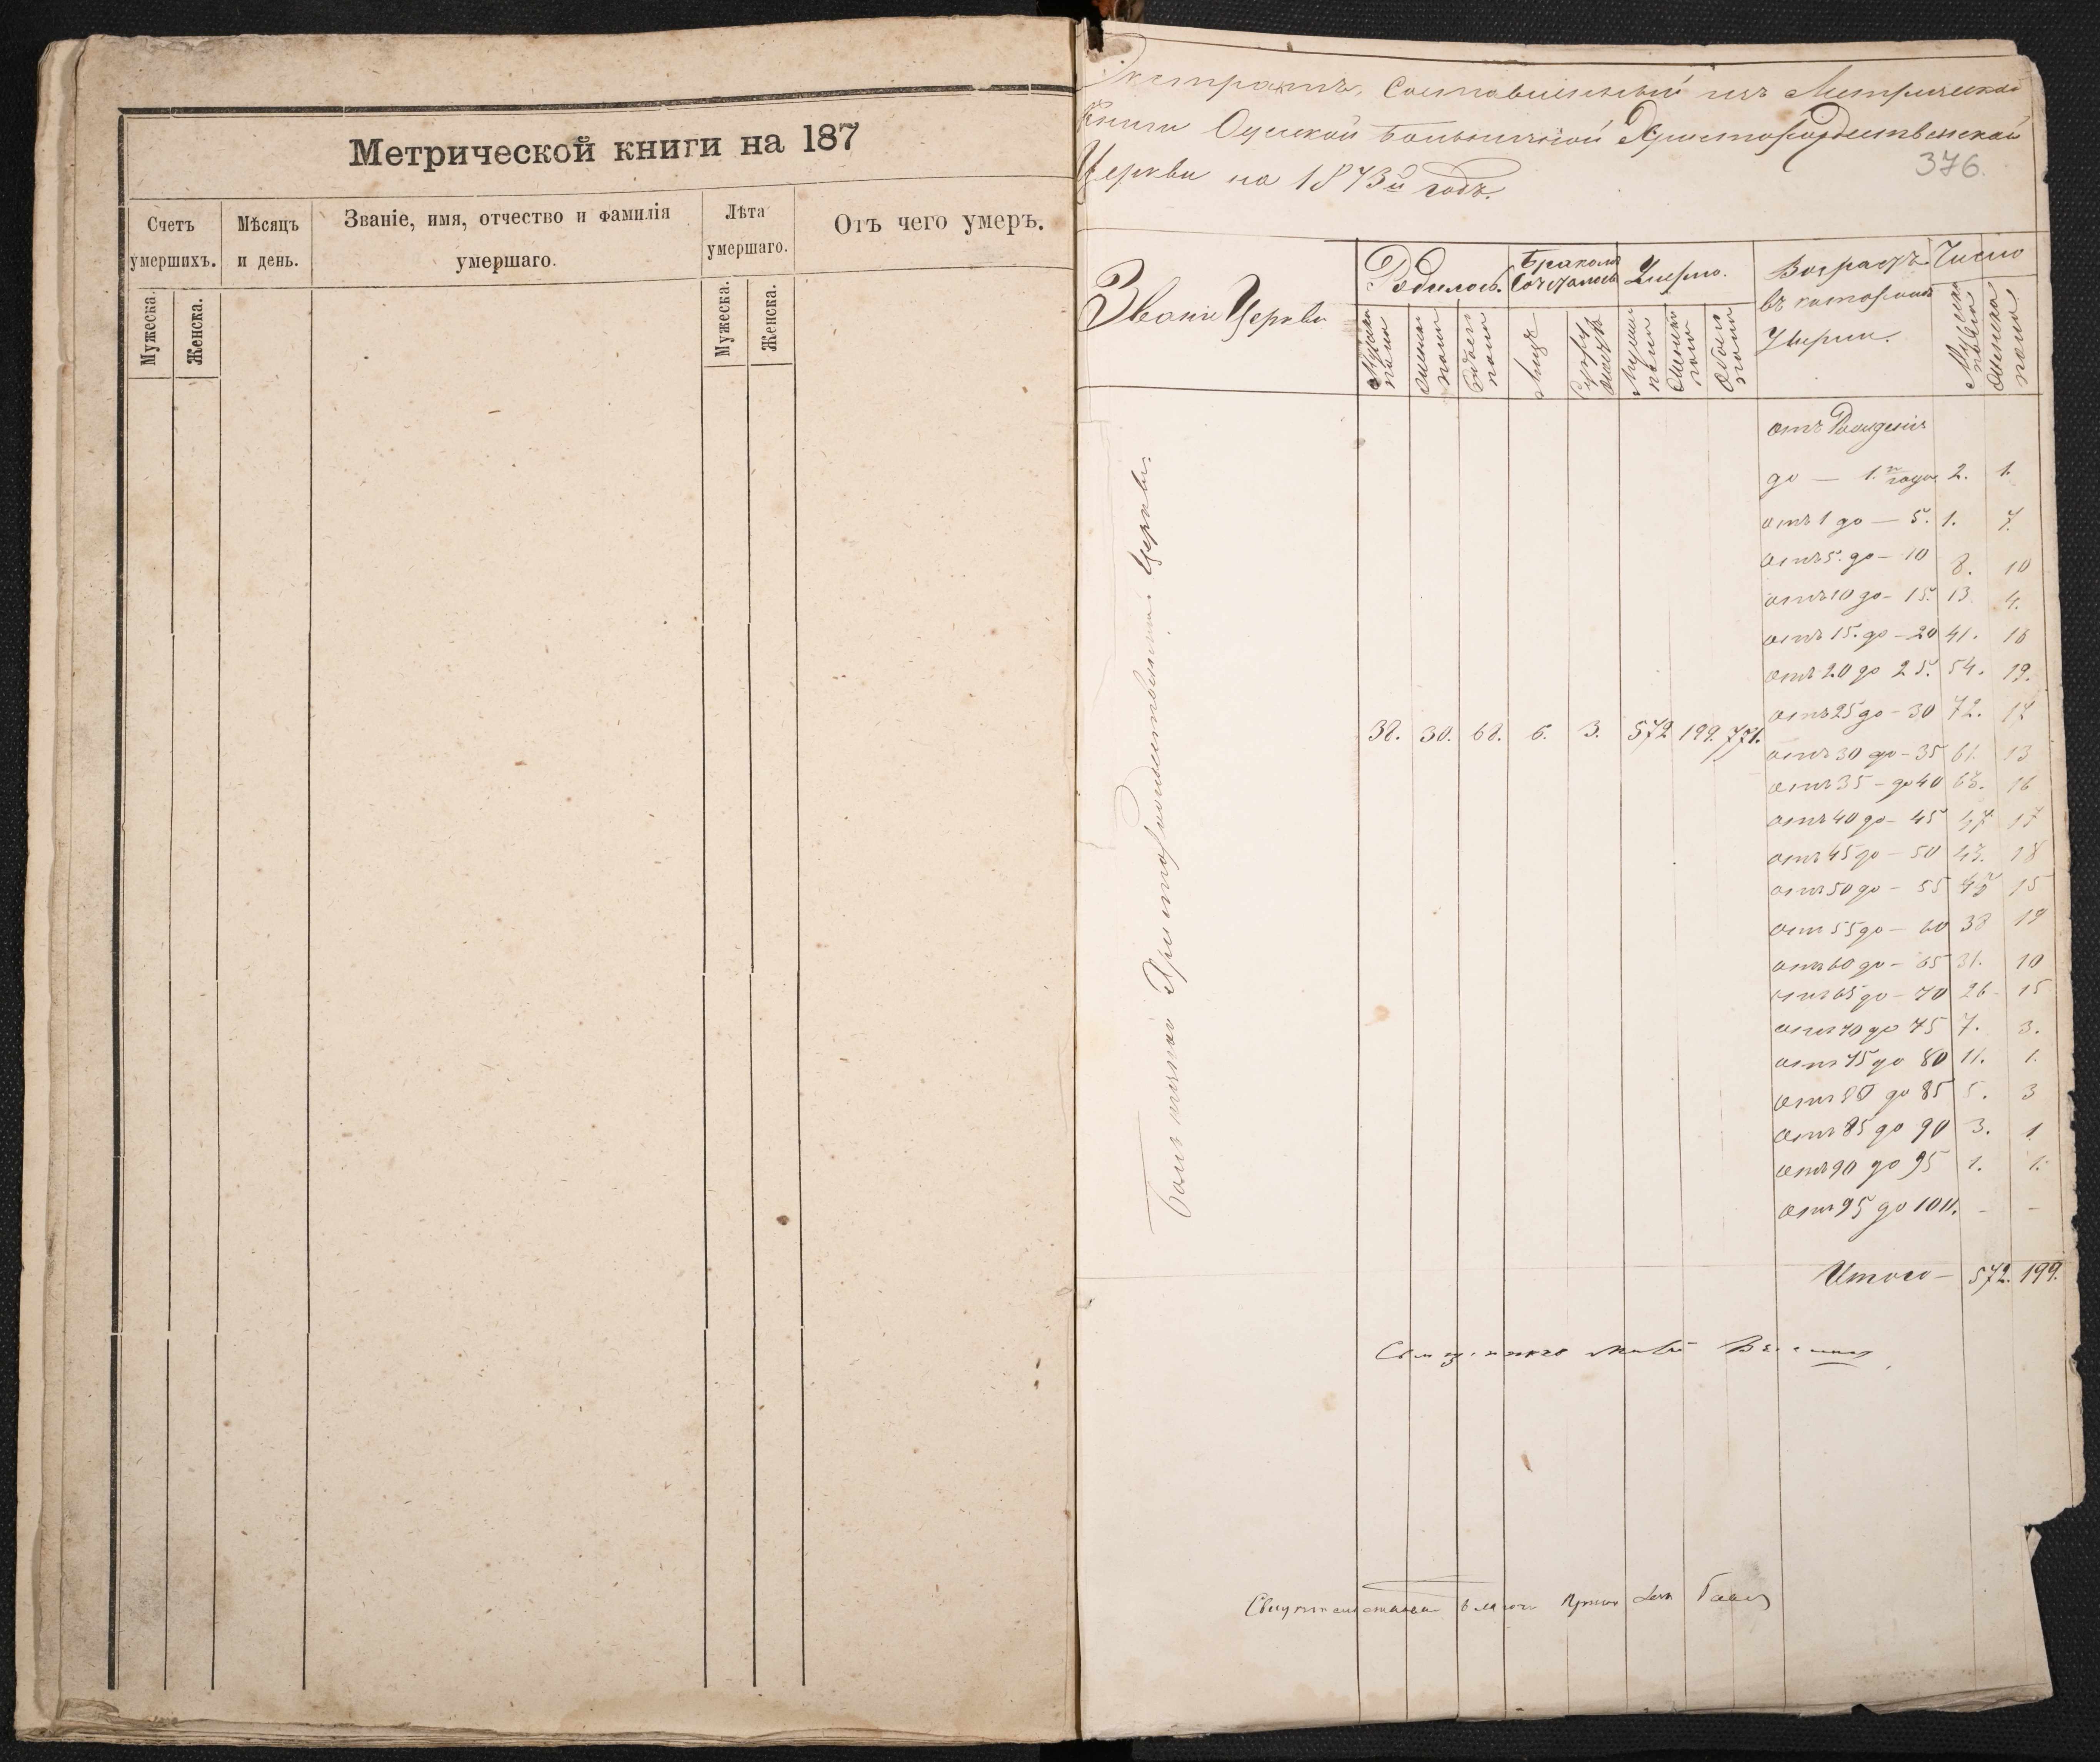 Метрической книги на 187
Счетъ умершихъ.
Мужеска.
Женска.
Мѣсяцъ и день.
Званіе, имя, отчество и фамилія
умершаго.
Лѣта умершаго.
Мужеска.
Женска.
Отъ чего умеръ.
Экстрактъ, Составленный изъ Метрической
Книги Одесской Больничной Христорождественской
Церкви на 1873й годъ.
376
Званіе Церкви
Родилось.
Мужеска пола
Женска пола
Обоего пола
Бракомъ Сочеталось
Лицъ
Умерло.
Мужеска пола
Женска пола
Обоего пола
Возрастъ въ которомъ Умерли.
Число
Мужеска пола
Женска пола
Больничной Христорождественской Церкви.
38. 30. 68. 6. 3. 572 199. 771.
отъ Рожденія
до — 1. го года 2. 1.
отъ 1 до — 5. 1. 7.
отъ 5. до — 10 8. 10
отъ 10 до — 15. 13 4.
отъ 15. до — 20 41. 18
отъ 20 до 25. 54. 19.
отъ 25 до — 30 72. 17
отъ 30 до — 35 61. 13
отъ 35 — до 40 63. 16
отъ 40 до — 45 47 17
отъ 45 до — 50 43. 18
отъ 50 до — 55 15
отъ 55 до — 60 38
отъ 60 до — 65 31. 10
отъ 65 до — 70 26 15
отъ 70 до 75 7. 3.
отъ 75 до 80 11. 1.
отъ 80 до 85 5. 3
отъ 85 до 90 3. 1
отъ 90 до 95 1. 1.
отъ 95 до 100. - -
Итого — 572. 199.
Священникъ